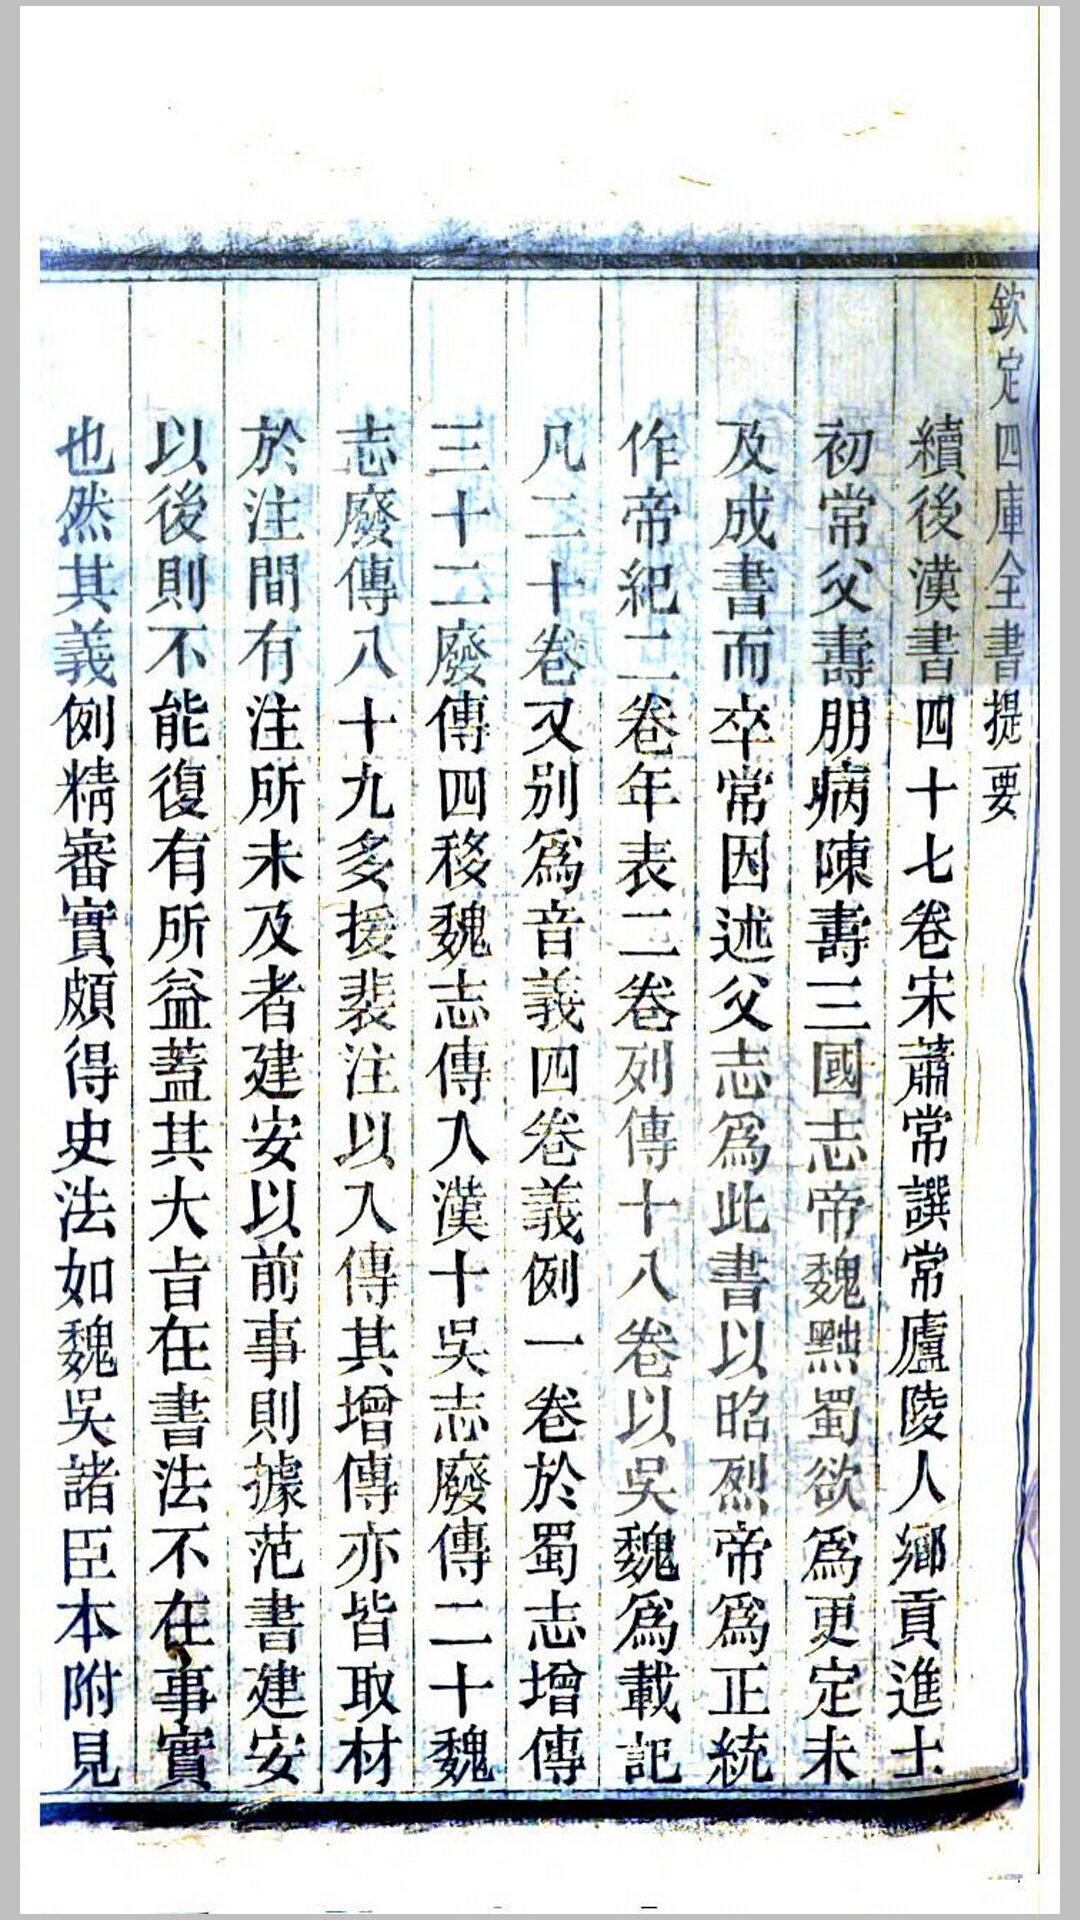 欽定四庫全書提要
續後漢書四十七卷宋蕭常譔常廬陵人鄉貢進士
初常父壽朋病陳壽三國志帝魏黜蜀欲爲更定未
及成書而卒常因述父志爲此書以昭烈帝爲正統
作帝紀二卷年表二卷列傳十八卷以吳魏爲載記
凡二十卷又別爲音義四卷義例一卷於蜀志增傳
三十二廢傳四移魏志傳入漢十吳志廢傳二十魏
志廢傳八十九多援裴注以入傳其增傳亦皆取材
於注間有注所未及者建安以前事則據范書建安
以後則不能復有所益蓋其大旨在書法不在事實
也然其義例精審實頗得史法如魏吳諸臣本附見